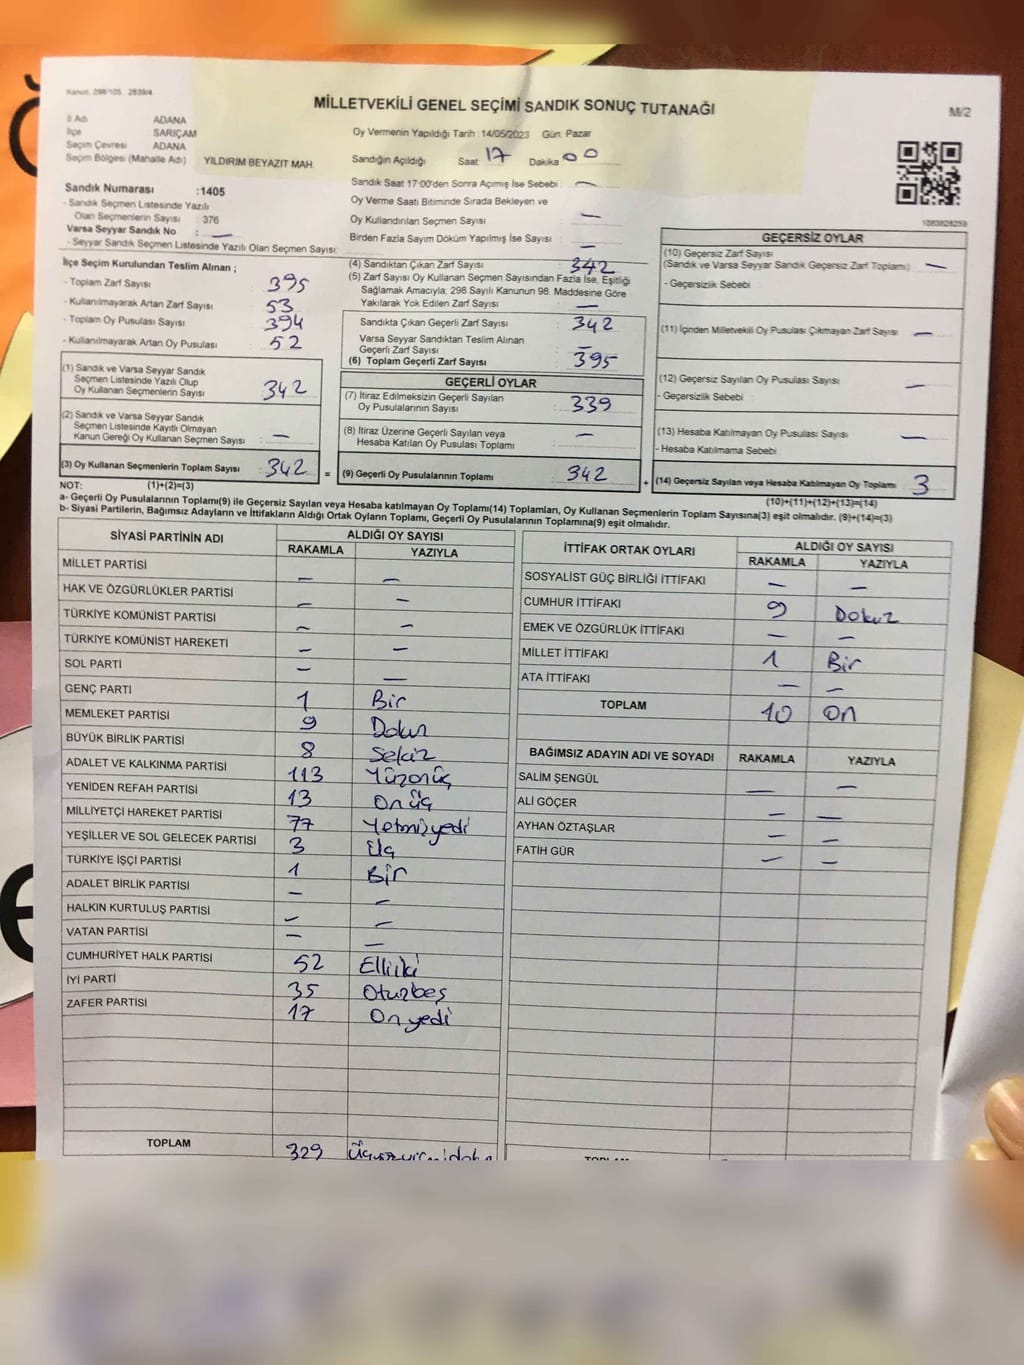 Kanun: 298/105 2839/4
MİLLETVEKİLİ GENEL SEÇİMİ SANDIK SONUÇ TUTANAĞI
M/2
İl Adı ADANA
İlçe SARIÇAM
Seçim Çevresi ADANA
Seçim Bölgesi (Mahalle Adı) YILDIRIM BEYAZIT MAH.
Sandık Numarası :1405
- Sandık Seçmen Listesinde Yazılı
Olan Seçmenlerin Sayısı : 376
Varsa Seyyar Sandık No : —
- Seyyar Sandık Seçmen Listesinde Yazılı Olan Seçmen Sayısı:
Oy Vermenin Yapıldığı Tarih : 14/05/2023 Gün: Pazar
Sandığın Açıldığı Saat: 17 Dakika 00
Sandık Saat 17:00'den Sonra Açımış İse Sebebi : —
Oy Verme Saati Bitiminde Sırada Bekleyen ve
Oy Kullandırılan Seçmen Sayısı : —
Birden Fazla Sayım Döküm Yapılmış İse Sayısı : —
İlçe Seçim Kurulundan Teslim Alınan ;
- Toplam Zarf Sayısı : 395
- Kullanılmayarak Artan Zarf Sayısı : 53
- Toplam Oy Pusulası Sayısı : 394
- Kullanılmayarak Artan Oy Pusulası : 52
(1) Sandık ve Varsa Seyyar Sandık
Seçmen Listesinde Yazılı Olup
Oy Kullanan Seçmenlerin Sayısı : 342
(2) Sandık ve Varsa Seyyar Sandık
Seçmen Listesinde Kayıtlı Olmayan
Kanun Gereği Oy Kullanan Seçmen Sayısı : —
(3) Oy Kullanan Seçmenlerin Toplam Sayısı : 342 =
(4) Sandıktan Çıkan Zarf Sayısı : 342
(5) Zarf Sayısı Oy Kullanan Seçmen Sayısından Fazla İse, Eşitliği
Sağlamak Amacıyla; 298 Sayılı Kanunun 98. Maddesine Göre
Yakılarak Yok Edilen Zarf Sayısı : —
Sandıkta Çıkan Geçerli Zarf Sayısı : 342
Varsa Seyyar Sandıktan Teslim Alınan
Geçerli Zarf Sayısı : —
(6) Toplam Geçerli Zarf Sayısı : 395
GEÇERLİ OYLAR
(7) İtiraz Edilmeksizin Geçerli Sayılan
Oy Pusulalarının Sayısı : 339
(8) İtiraz Üzerine Geçerli Sayılan veya
Hesaba Katılan Oy Pusulası Toplamı : —
(9) Geçerli Oy Pusulalarının Toplamı : 342 +
1080828259
GEÇERSİZ OYLAR
(10) Geçersiz Zarf Sayısı
(Sandık ve Varsa Seyyar Sandık Geçersiz Zarf Toplamı) : —
- Geçersizlik Sebebi :
(11) İçinden Milletvekili Oy Pusulası Çıkmayan Zarf Sayısı : —
(12) Geçersiz Sayılan Oy Pusulası Sayısı : —
- Geçersizlik Sebebi :
(13) Hesaba Katılmayan Oy Pusulası Sayısı : —
- Hesaba Katılmama Sebebi :
(14) Geçersiz Sayılan veya Hesaba Katılmayan Oy Toplamı : 3
NOT: (1)+(2)=(3)
(10)+(11)+(12)+(13)=(14)
a- Geçerli Oy Pusulalarının Toplamı(9) ile Geçersiz Sayılan veya Hesaba Katılmayan Oy Toplamı(14) Toplamları, Oy Kullanan Seçmenlerin Toplam Sayısına(3) eşit olmalıdır. (9)+(14)=(3)
b- Siyasi Partilerin, Bağımsız Adayların ve İttifakların Aldığı Ortak Oyların Toplamı, Geçerli Oy Pusulalarının Toplamına(9) eşit olmalıdır.
SİYASİ PARTİNİN ADI ALDIĞI OY SAYISI
RAKAMLA YAZIYLA
MİLLET PARTİSİ — —
HAK VE ÖZGÜRLÜKLER PARTİSİ — —
TÜRKİYE KOMÜNİST PARTİSİ — —
TÜRKİYE KOMÜNİST HAREKETİ — —
SOL PARTİ — —
GENÇ PARTİ 1 Bir
MEMLEKET PARTİSİ 9 Dokuz
BÜYÜK BİRLİK PARTİSİ 8 Sekiz
ADALET VE KALKINMA PARTİSİ 113 Yüzonüç
YENİDEN REFAH PARTİSİ 13 Onüç
MİLLİYETÇİ HAREKET PARTİSİ 77 Yetmişyedi
YEŞİLLER VE SOL GELECEK PARTİSİ 3 Üç
TÜRKİYE İŞÇİ PARTİSİ 1 Bir
ADALET BİRLİK PARTİSİ — —
HALKIN KURTULUŞ PARTİSİ — —
VATAN PARTİSİ — —
CUMHURİYET HALK PARTİSİ 52 Elliiki
İYİ PARTİ 35 Otuzbeş
ZAFER PARTİSİ 17 Onyedi
TOPLAM 329
İTTİFAK ORTAK OYLARI ALDIĞI OY SAYISI
RAKAMLA YAZIYLA
SOSYALİST GÜÇ BİRLİĞİ İTTİFAKI — —
CUMHUR İTTİFAKI 9 Dokuz
EMEK VE ÖZGÜRLÜK İTTİFAKI — —
MİLLET İTTİFAKI 1 Bir
ATA İTTİFAKI — —
TOPLAM 10 On
BAĞIMSIZ ADAYIN ADI VE SOYADI RAKAMLA YAZIYLA
SALİM ŞENGÜL — —
ALİ GÖÇER — —
AYHAN ÖZTAŞLAR — —
FATİH GÜR — —